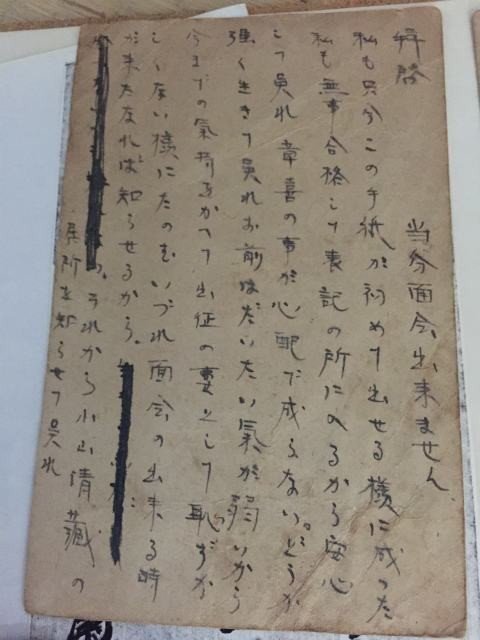 拝啓
当分面会出来ません
私も只今この手紙が初めて出せる様に成った
私も無事合格して表記の所に入るから安心
して呉れ 章喜の事が心配で成らない。どうか
強く生きて呉れお前はだいたい氣が弱いから
今までの氣持をかへて出征の妻として恥ずか
しくない様にたのむいづれ面会の出来る時
が来たなれば知らせるから。
それから小山清藏の
居所を知らせて呉れ